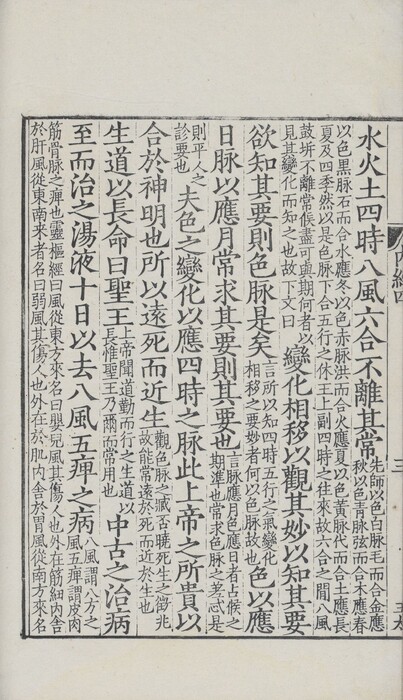 內經四
三
水火土四時八風六合不離其常
先師以色白脉毛而合金應
秋以色青脉弦而合木應春
以色黑脉石而合水應冬以色赤脉洪而合火應夏以色黃脉代而合土應長
夏及四季然以是色脉下合五行之休王上副四時之往來故六合之間八風
鼓坼不離常候盡可與期何者以
見其變化而知之也故下文曰
變化相移以觀其妙以知其要
欲知其要則色脉是矣
言所以知四時五行之氣變化
相移之要妙者何以色脉故也
色以應
日脉以應月常求其要則其要也
言脉應月色應日者占候之
期準也常求色脉之差忒是
則平人之
診要也
夫色之變化以應四時之脉此上帝之所貴以
合於神明也所以遠死而近生
觀色脉之臧否曉死生之徵兆
故能常遠於死而近於生也
生道以長命曰聖王
上帝聞道勤而行之生道以
長惟聖王乃爾而常用也
中古之治病
至而治之湯液十日以去八風五痺之病
八風謂八方之
風五痺謂皮肉
筋骨脉之痺也靈樞經曰風從東方來名曰嬰兒風其傷人也外在筋細內舍
於肝風從東南來者名曰弱風其傷人也外在於肌內舍於胃風從南方來名